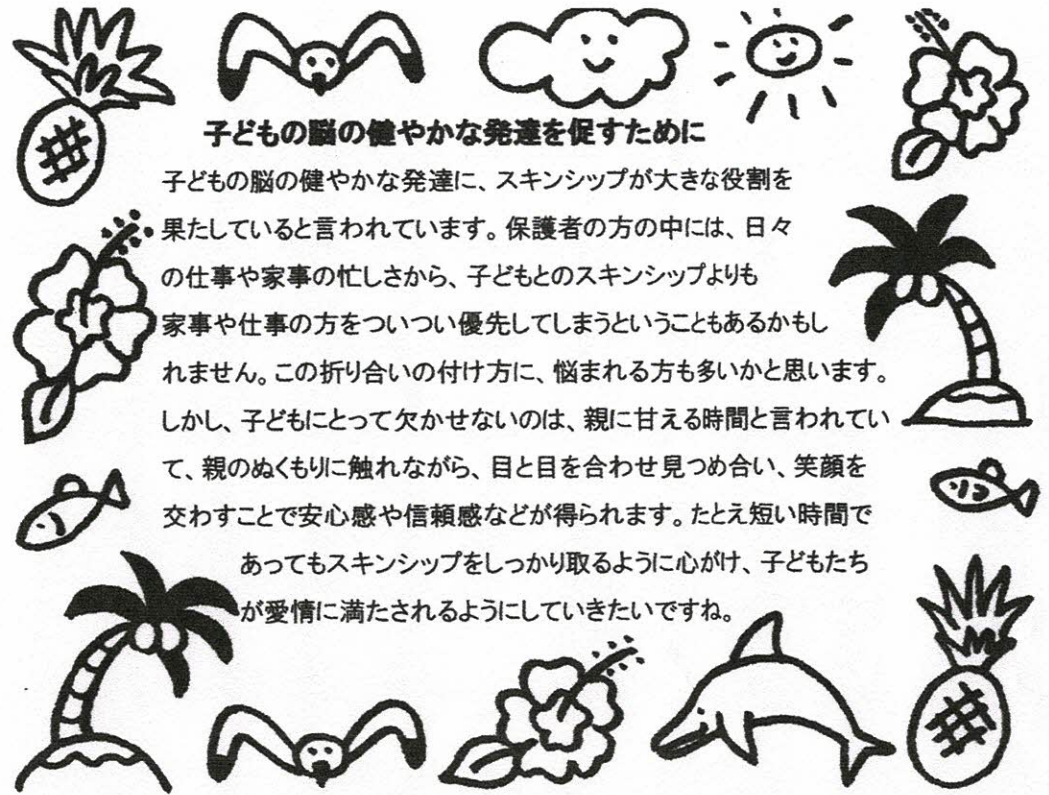 子どもの脳の健やかな発達を促すために
子どもの脳の健やかな発達に、スキンシップが大きな役割を
果たしていると言われています。保護者の方の中には、日々
の仕事や家事の忙しさから、子どもとのスキンシップよりも
家事や仕事の方をついつい優先してしまうということもあるかもし
れません。この折り合いの付け方に、悩まれる方も多いかと思います。
しかし、子どもにとって欠かせないのは、親に甘える時間と言われてい
て、親のぬくもりに触れながら、目と目を合わせ見つめ合い、笑顔を
交わすことで安心感や信頼感などが得られます。たとえ短い時間で
あってもスキンシップをしっかり取るように心がけ、子どもたち
が愛情に満たされるようにしていきたいですね。